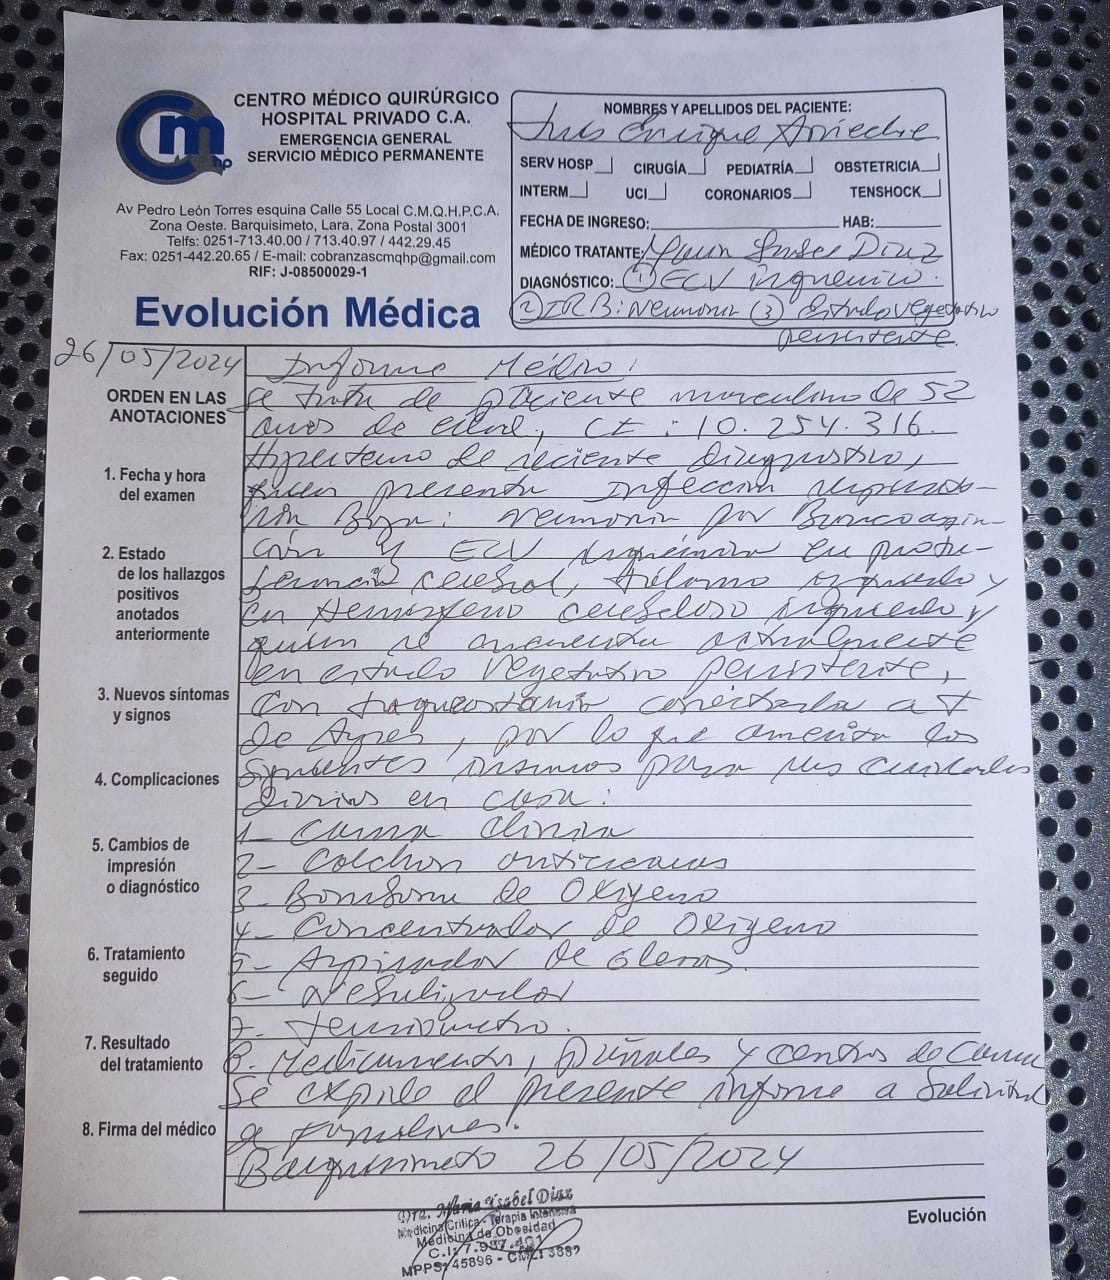 CENTRO MÉDICO QUIRÚRGICO
HOSPITAL PRIVADO C.A.
EMERGENCIA GENERAL
SERVICIO MÉDICO PERMANENTE
Av Pedro León Torres esquina Calle 55 Local C.M.Q.H.P.C.A.
Zona Oeste. Barquisimeto, Lara. Zona Postal 3001
Telfs: 0251-713.40.00 / 713.40.97 / 442.29.45
Fax: 0251-442.20.65 / E-mail: cobranzascmqhp@gmail.com
RIF: J-08500029-1
Evolución Médica
NOMBRES Y APELLIDOS DEL PACIENTE:
Luis Enrique Arrieche
SERV HOSP CIRUGÍA PEDIATRÍA OBSTETRICIA
INTERM UCI CORONARIOS TENSHOCK
FECHA DE INGRESO: HAB:
MÉDICO TRATANTE: Díaz
DIAGNÓSTICO: ① ECV isquemico.
② IRB: Neumonia ③ Estado vegetativo
persistente.
26/05/2024 Informe Médico:
ORDEN EN LAS
ANOTACIONES
1. Fecha y hora
del examen
2. Estado
de los hallazgos
positivos
anotados
anteriormente
3. Nuevos síntomas
y signos
4. Complicaciones
5. Cambios de
impresión
o diagnóstico
6. Tratamiento
seguido
7. Resultado
del tratamiento
8. Firma del médico
Se trata de paciente masculino de 52
años de edad, CI: 10.254.316.
Hipertenso de reciente Diagnostico,
quien presenta Infección respirato-
ria Baja: Neumonia por Broncoaspira-
ción y ECV isquémico en protu-
berancia cerebral, tálamo izquierdo y
en Hemisferio cerebeloso izquierdo y
quien se encuentra actualmente
en estado vegetativo persistente,
con traqueostomia conectada a T
de Ayres, por lo que amerita los
siguientes insumos para sus cuidados
diarios en casa:
1- Cama clinica
2- Colchon antiescaras
3- Bombona de Oxigeno
4- Concentrador de Oxigeno
5- Aspirador de flemas.
6- Nebulizador
7- Tensiometro.
8. Medicamentos, pañales y centros de Cama
Se expide el presente informe a Solicitud
de familiares.
Barquisimeto 26/05/2024
Dra. Maria Isabel Diaz
Medicina Crítica - Terapia Intensiva
Medicina de Obesidad
C.I: 7.987.401
MPPS: 45896 - 3887
Evolución